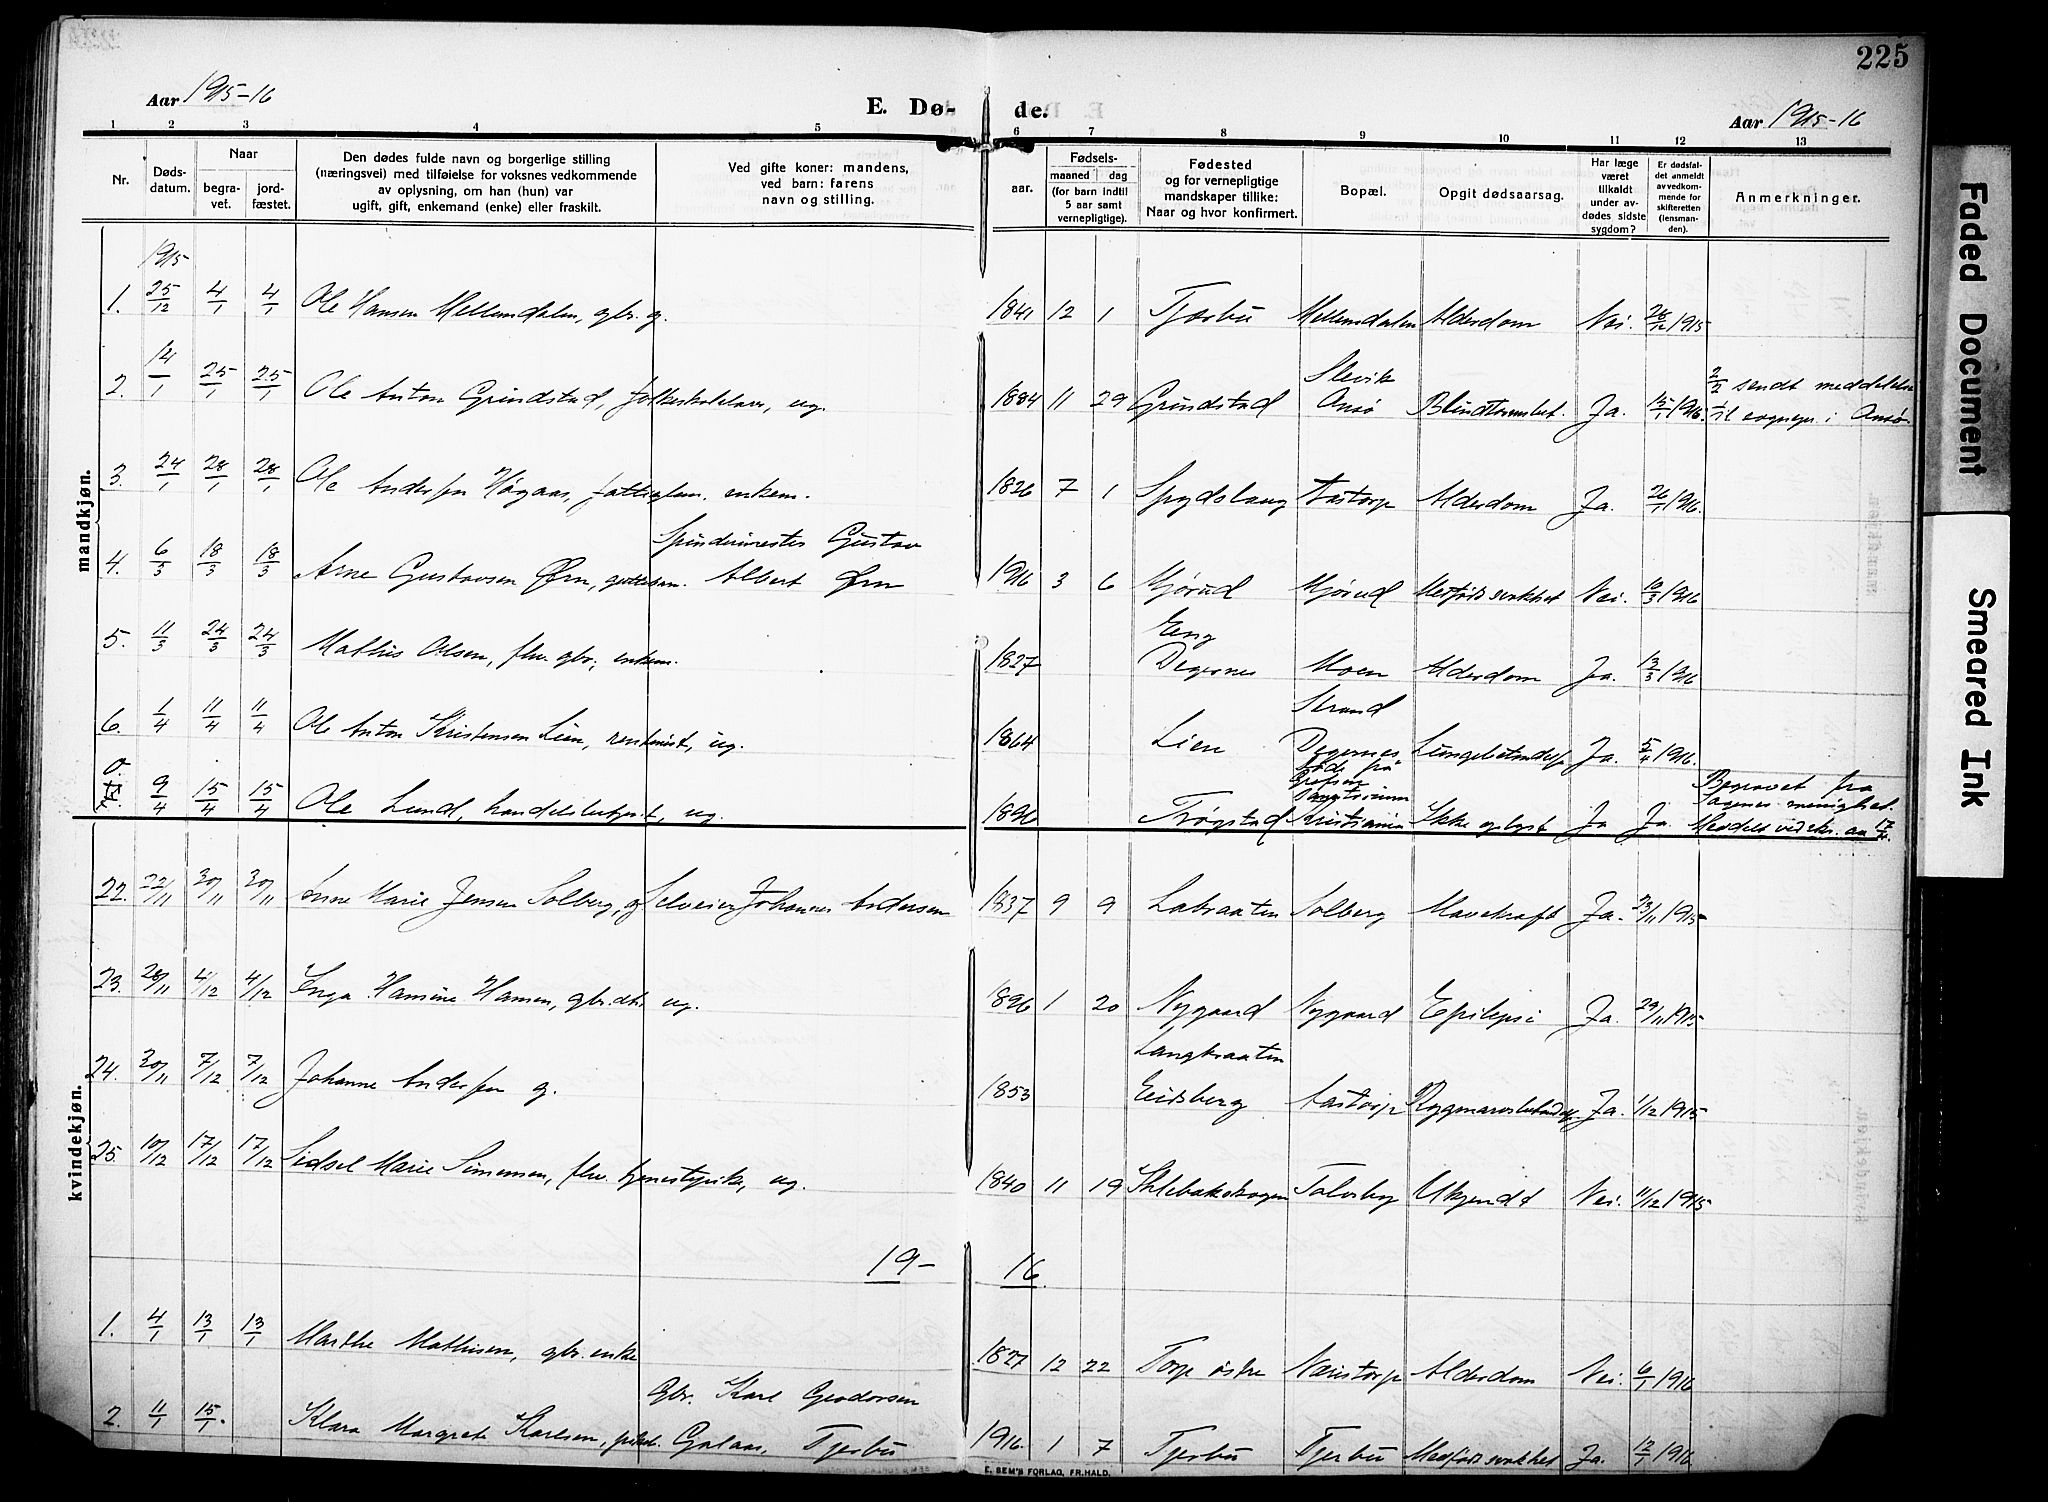 225
Aar 1915-16
E. Dø- de.
Aar 1915-16
1 2 3 4 5 6 7 8 9 10 11 12 13
Nr.
Døds-
datum.
Naar
begra-
vet.
jord-
fæstet.
Den dødes fulde navn og borgerlige stilling
(næringsvei) med tilføielse for voksnes vedkommende
av oplysning, om han (hun) var
ugift, gift, enkemand (enke) eller fraskilt.
Ved gifte koner: mandens,
ved barn: farens
navn og stilling.
aar.
Fødsels-
maaned dag
(for barn indtil
5 aar samt
vernepligtige).
Fødested
og for vernepligtige
mandskaper tillike:
Naar og hvor konfirmert.
Bopæl.
Opgit dødsaarsag.
Har læge
været
tilkaldt
under av-
dødes sidste
sygdom?
Er dødsfal-
det anmeldt
av vedkom-
mende for
skifteretten
(lensman-
den).
Anmerkninger.
mandkjøn.
1915
1. 25/12 4/1 4/1 Ole Hansen Mellemdalen, gbr. g. 1841 12 1 Tjærbu Mellemdalen Alderdom Nei. 28/12 1915
2. 14/1 25/1 25/1 Ole Anton Grindstad, folkeskolelærer, ug. 1884 11 29 Grindstad Slevik Onsø Blindtarmsbet. Ja. 15/1 1916. 2/2 sendt meddelelse
til sognepr. i Onsø
3. 24/1 28/1 28/1 Ole Andersen Høgaas, fattiglem. enkem. 1826 7 1 Spydslaug Aastorp Alderdom Ja. 26/1 1916.
Spindemester Gustav
4. 6/3 18/3 18/3 Arne Gustavsen Ørn, guttebarn. Albert Ørn 1916 3 6 Mjørud Mjørud Medfødt svakhet Nei. 10/3 1916
Eng
5. 11/3 24/3 24/3 Mathis Olsen, fhv. gbr., enkem. 1827 Degernes Moen Alderdom Ja. 13/3 1916
Strand
6. 1/4 11/4 11/4 Ole Anton Kristensen Lien, rentenist, ug. 1864 Lien Degernes Lungebetændelse Ja. 5/4 1916.
0. 9/4 15/4 15/4 Ole Lund, handelsbetjent, ug. 1896 Trøgstad Døde på Grefsen Sanatorium Kristiania Ikke oplyst Ja Ja. Begravet fra
menighet.
17/4
kvindekjøn.
22. 22/11 30/11 30/11 Anne Marie Jensen Solberg, g. Selveier Johannes Andersen 1837 9 9 Labraaten Solberg Mavekræft Ja. 23/11 1915
23. 28/11 4/12 4/12 Inga Hansine Hansen, gbr.dtr. ug. 1896 1 20 Nygaard Nygaard Epilepsi Ja. 29/11 1915
Langbraaten
24. 30/11 7/12 7/12 Johanne Andersen g. 1853 Eidsberg Aastorp Rygmarvsbetændelse Ja. 1/12 1915
25. 10/12 17/12 17/12 Sidsel Marie Simensen, fhv. tjenestepike, ug. 1840 11 19 Sklebakskogen Toverby Ukjendt Nei. 11/12 1915
19- 16
1. 4/1 13/1 13/1 Marthe Mathisen, gbr. enke 1827 12 22 Torp østre Næristorp Alderdom Nei. 6/1 1916
Gbr. Karl Geodorsen
2. 11/1 15/1. Klara Margrete Karlsen, pikeb. Galaas, Tjerbu 1916 1 7 Tjerbu Tjerbu Medfødt svakhet Ja. 12/1 1916
E. SEM'S FORLAG, FR.HALD.
Faded Document
Smeared Ink